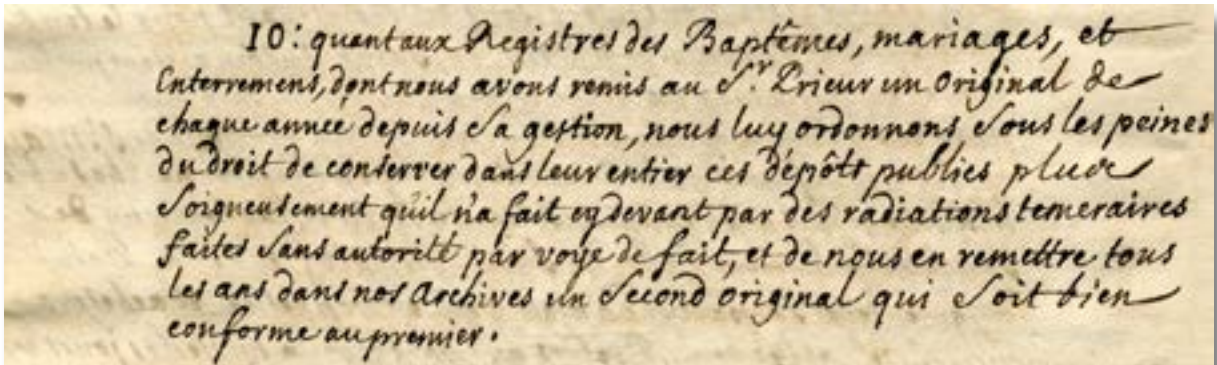 10: quant aux Registres des Baptêmes, mariages, et
Enterremens, dont nous avons remis au Sr. Prieur un Original de
chaque année depuis sa gestion, nous luy ordonnons sous les peines
du droit de conserver dans leur entier ces dépôts publics plus
soigneusement qu'il n'a fait cy devant par des radiations temeraires
faites sans autorité par voye de fait, et de nous en remettre tous
les ans dans nos Archives un second original qui soit bien
conforme au premier.